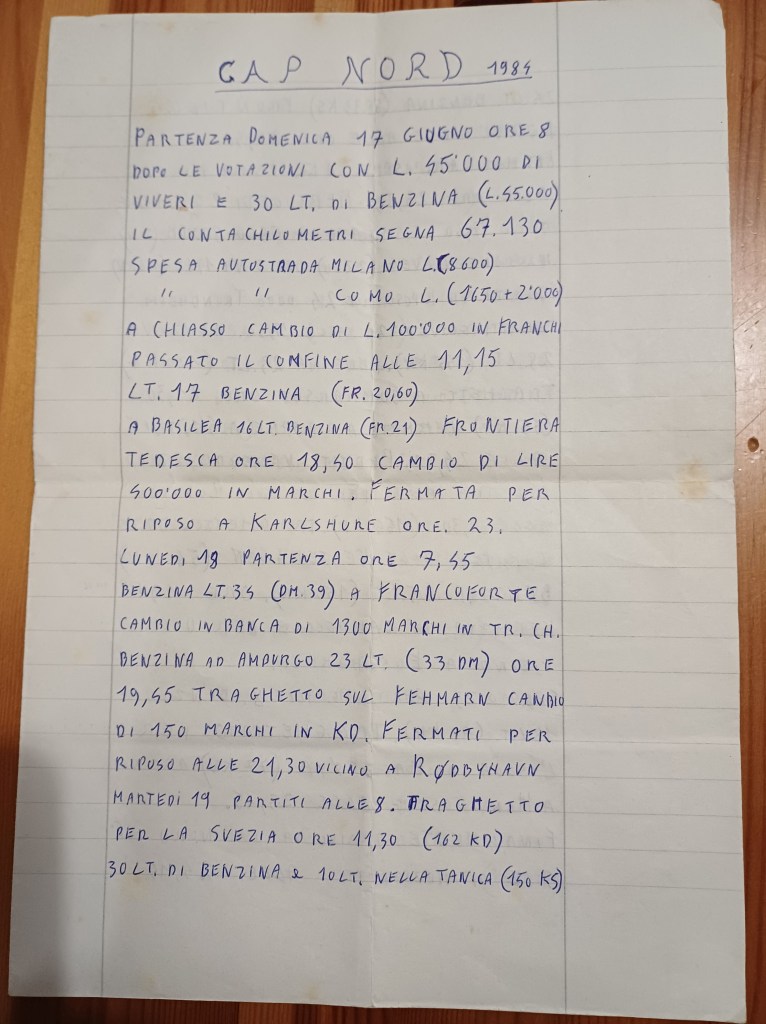 CAP NORD 1984
PARTENZA DOMENICA 17 GIUGNO ORE 8
DOPO LE VOTAZIONI CON L. 45'000 DI
VIVERI E 30 LT. DI BENZINA (L.45.000)
IL CONTACHILOMETRI SEGNA 67.130
SPESA AUTOSTRADA MILANO L.(8600)
" " COMO L. (1650+2'000)
A CHIASSO CAMBIO DI L.100'000 IN FRANCHI
PASSATO IL CONFINE ALLE 11,15
LT. 17 BENZINA (FR. 20,60)
A BASILEA 16 LT. BENZINA (FR.21) FRONTIERA
TEDESCA ORE 18,40 CAMBIO DI LIRE
400'000 IN MARCHI. FERMATA PER
RIPOSO A KARLSHURE ORE. 23.
LUNEDI 18 PARTENZA ORE 7,45
BENZINA LT.34 (DM.39) A FRANCOFORTE
CAMBIO IN BANCA DI 1300 MARCHI IN TR. CH.
BENZINA AD AMBURGO 23 LT. (33 DM) ORE
19,45 TRAGHETTO SUL FEHMARN CANBIO
DI 150 MARCHI IN KD. FERMATI PER
RIPOSO ALLE 21,30 VICINO A RØDBYHAVN
MARTEDI 19 PARTITI ALLE 8. TRAGHETTO
PER LA SVEZIA ORE 11,30 (162 KD)
30 LT. DI BENZINA e 10 LT. NELLA TANICA (150 KS)